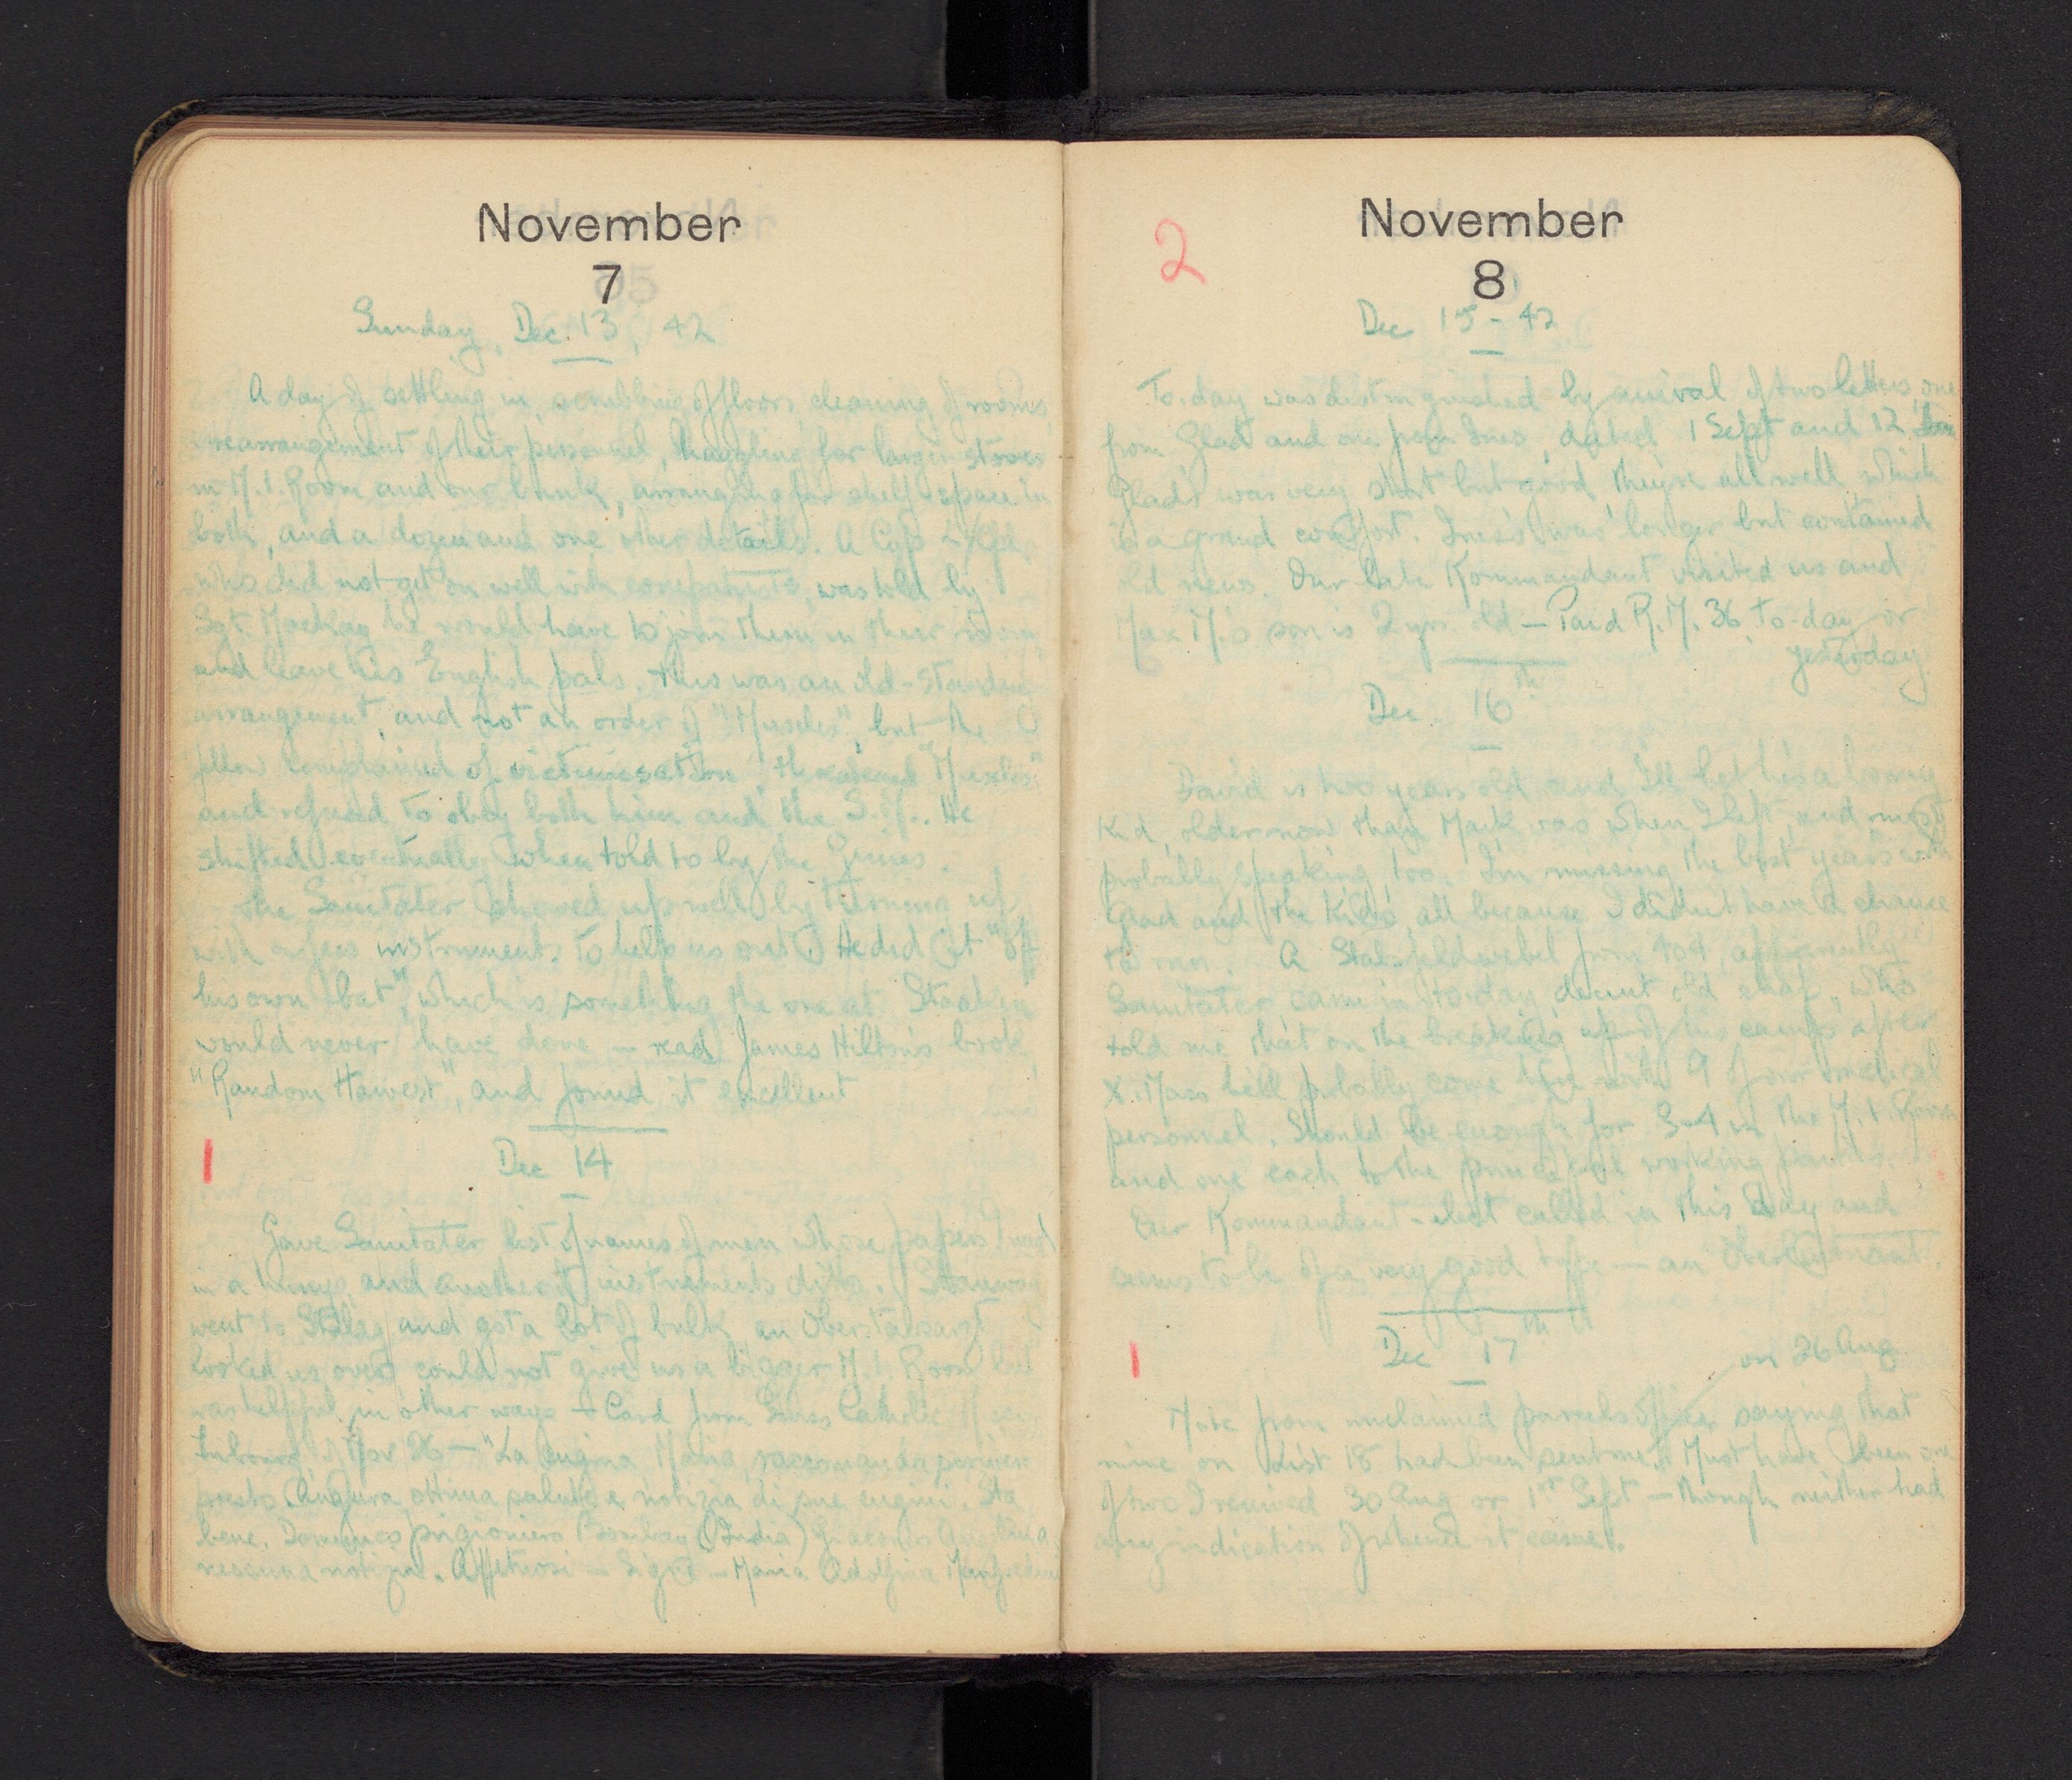 November
7
Sunday, Dec. 13, 42
A day of settling in, scrubbing of floors, cleaning of rooms,
rearrangement of their personnel, haggling for larger stoves
in M.I. Room and our bunk, arranging for shelf-space in
both, and a dozen and one other details. A Cyp L/Cpl,
who did not get on well with compatriots, was told by
Sgt. Mackay he would have to join them in their room
and leave his English pals. This was an old-standing
arrangement, and not an order of "Muscles", but the
fellow complained of victimisation, threatened "Muscles"
and refused to obey both him and the S.M.. He
shifted eventually when told to by the Jerries.
The Sanitater showed up well by turning up
with a few instruments to help us out. He did it "off
his own bat", which is something the one at
would never have done — read James Hilton's book,
"Random Harvest", and found it excellent
1
Dec 14
Gave Sanitater list of names of men whose papers I want
in a hurry, and another of instruments ditto.
went to Stalag and got a lot of bulk, an Oberstabsarzt
looked us over, could not give us a bigger M.I. Room but
was helpful in other ways — Card from Swiss Catholic
Nov 26 — "La cugina Maria, raccomanda scrivere
presto. Augura ottima salute e notizia di sue cugini. Sta
bene. Domenico prigioniero Bombay (India)
nessuna notizia. Affetuosi — Signed — Maria Adolfina
2
November
8
Dec 15 - 42
To-day was distinguished by arrival of two letters, one
from Glad and one from Ines, dated 1 Sept and 12
Glad's was very short but good, they're all well which
is a grand comfort. Ines's was longer but contained
old news. Our late Kommandant visited us and
Max M.'s son is 2 yrs. old — Paid R.M. 36 to-day or
yesterday
Dec 16th
David is two years old and I'll bet he's a bonny
kid, older now than Mark was when I left, and most
probably speaking, too. I'm missing the best years with
Glad and the kids, all because I didn't have a chance
to run. A Stab. feldwebel from 404, apparently
Sanitater came in to-day, decent old chap, who
told me that on the breaking up of his camp after
X.Mass he'll probably come here with 9 of our medical
personnel. Should be enough for 3-4 in the M.I. Room
and one each to the principal working parties.
Our Kommandant-elect called in this day and
seems to be of a very good type — an Oberleutnant.
1
Dec 17th
on 26 Aug
Note from unclaimed parcels office saying that
mine on List 18 had been sent me. Must have been one
of two I received 30 Aug or 1st Sept — though neither had
any indication of whence it came.